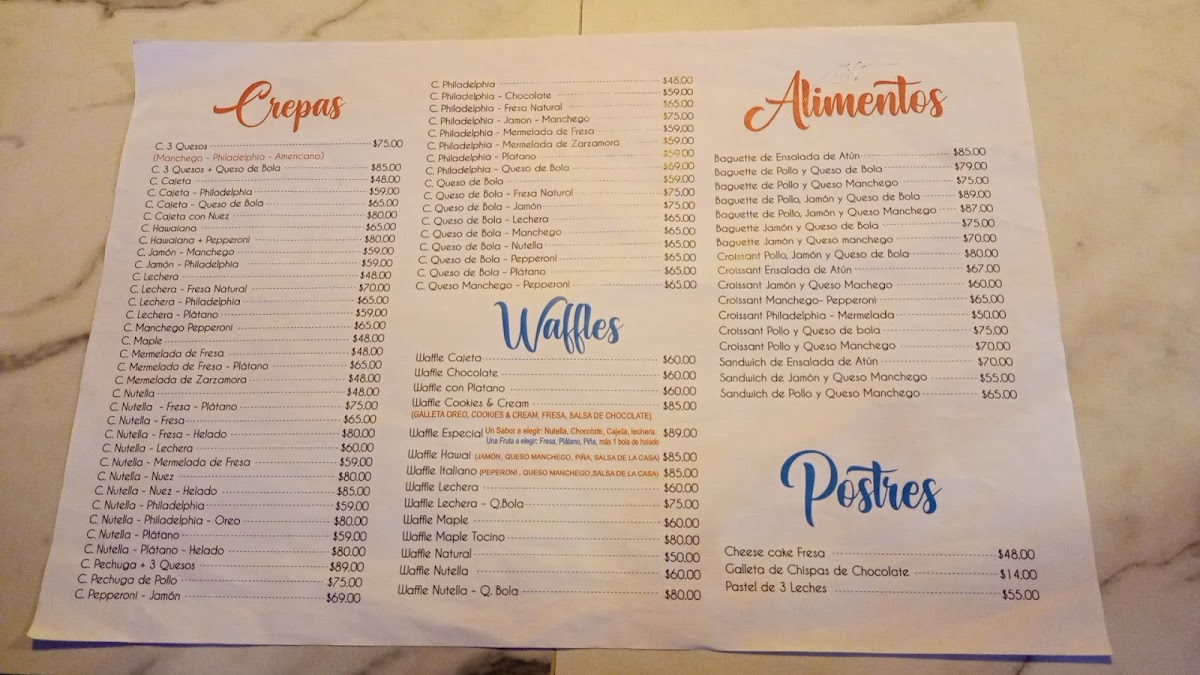 Crepas
C. 3 Quesos $75.00
(Manchego - Philadelphia - Americano)
C. 3 Quesos + Queso de Bola $85.00
C. Cajeta $48.00
C. Cajeta - Philadelphia $59.00
C. Cajeta - Queso de Bola $65.00
C. Cajeta con Nuez $80.00
C. Hawaiana $65.00
C. Hawaiana + Pepperoni $80.00
C. Jamón - Manchego $59.00
C. Jamón - Philadelphia $59.00
C. Lechera $48.00
C. Lechera - Fresa Natural $70.00
C. Lechera - Philadelphia $65.00
C. Lechera - Plátano $59.00
C. Manchego Pepperoni $65.00
C. Maple $48.00
C. Mermelada de Fresa $48.00
C. Mermelada de Fresa - Plátano $65.00
C. Mermelada de Zarzamora $48.00
C. Nutella $48.00
C. Nutella - Fresa - Plátano $75.00
C. Nutella - Fresa $65.00
C. Nutella - Fresa - Helado $80.00
C. Nutella - Lechera $60.00
C. Nutella - Mermelada de Fresa $59.00
C. Nutella - Nuez $80.00
C. Nutella - Nuez - Helado $85.00
C. Nutella - Philadelphia $59.00
C. Nutella - Philadelphia - Oreo $80.00
C. Nutella - Plátano $59.00
C. Nutella - Plátano - Helado $80.00
C. Pechuga + 3 Quesos $89.00
C. Pechuga de Pollo $75.00
C. Pepperoni - Jamón $69.00
C. Philadelphia $48.00
C. Philadelphia - Chocolate $59.00
C. Philadelphia - Fresa Natural $65.00
C. Philadelphia - Jamon - Manchego $75.00
C. Philadelphia - Mermelada de Fresa $59.00
C. Philadelphia - Mermelada de Zarzamora $59.00
C. Philadelphia - Platano $59.00
C. Philadelphia - Queso de Bola $69.00
C. Queso de Bola $59.00
C. Queso de Bola - Fresa Natural $75.00
C. Queso de Bola - Jamón $75.00
C. Queso de Bola - Lechera $65.00
C. Queso de Bola - Manchego $65.00
C. Queso de Bola - Nutella $65.00
C. Queso de Bola - Pepperoni $65.00
C. Queso de Bola - Plátano $65.00
C. Queso Manchego - Pepperoni $65.00
Waffles
Waffle Cajeta $60.00
Waffle Chocolate $60.00
Waffle con Platano $60.00
Waffle Cookies & Cream $85.00
(GALLETA OREO, COOKIES & CREAM, FRESA, SALSA DE CHOCOLATE)
Waffle Especial Un Sabor a elegir: Nutella, Chocolate, Cajeta, lechera. $89.00
Una Fruta a elegir: Fresa, Plátano, Piña, más 1 bola de helado
Waffle Hawai (JAMÓN, QUESO MANCHEGO, PIÑA, SALSA DE LA CASA) $85.00
Waffle Italiano (PEPERONI , QUESO MANCHEGO,SALSA DE LA CASA) $85.00
Waffle Lechera $60.00
Waffle Lechera - Q.Bola $75.00
Waffle Maple $60.00
Waffle Maple Tocino $80.00
Waffle Natural $50.00
Waffle Nutella $60.00
Waffle Nutella - Q. Bola $80.00
Alimentos
Baguette de Ensalada de Atún $85.00
Baguette de Pollo y Queso de Bola $79.00
Baguette de Pollo y Queso Manchego $75.00
Baguette de Pollo, Jamón y Queso de Bola $89.00
Baguette de Pollo, Jamón y Queso Manchego $87.00
Baguette Jamón y Queso de Bola $75.00
Baguette Jamón y Queso manchego $70.00
Croissant Pollo, Jamón y Queso de Bola $80.00
Croissant Ensalada de Atún $67.00
Croissant Jamón y Queso Machego $60.00
Croissant Manchego- Pepperoni $65.00
Croissant Philadelphia - Mermelada $50.00
Croissant Pollo y Queso de bola $75.00
Croissant Pollo y Queso Manchego $70.00
Sandwich de Ensalada de Atún $70.00
Sandwich de Jamón y Queso Manchego $55.00
Sandwich de Pollo y Queso Manchego $65.00
Postres
Cheese cake Fresa $48.00
Galleta de Chispas de Chocolate $14.00
Pastel de 3 Leches $55.00